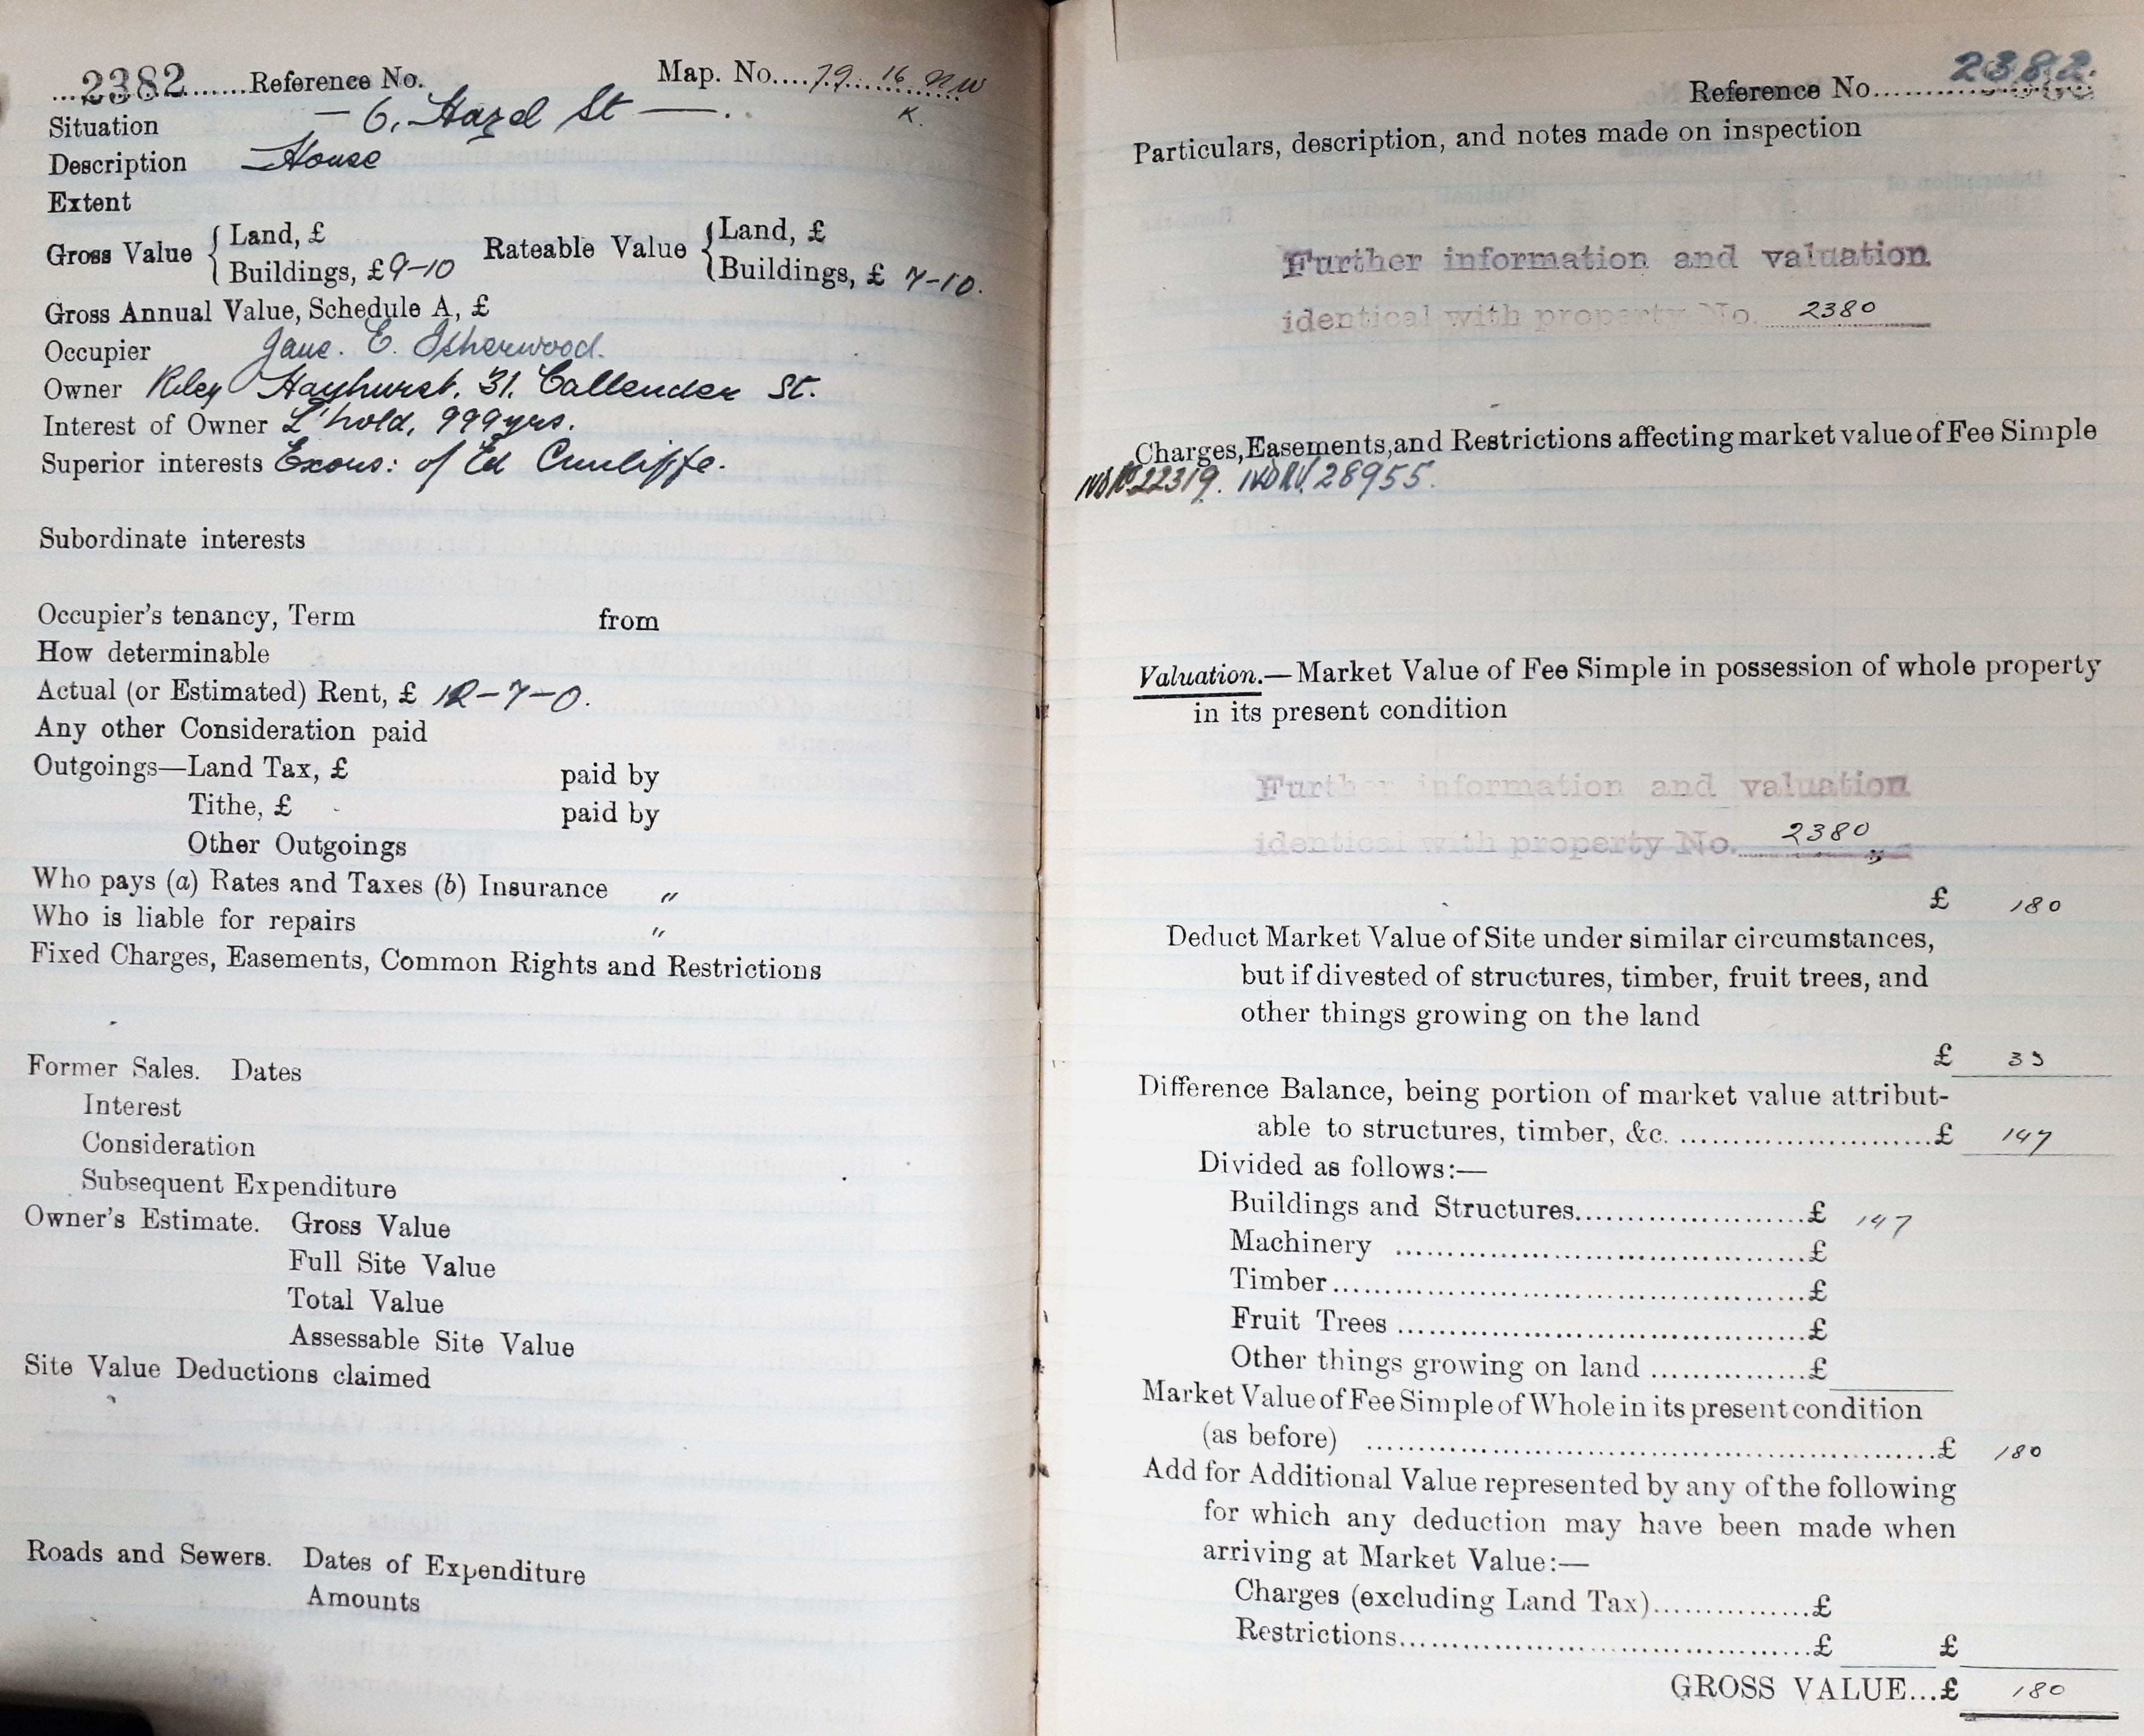 2382 Reference No. Map. No. 79. 16 NW
K.
Situation — 6, Hazel St —.
Description House
Extent
Gross Value { Land, £ Rateable Value { Land, £
Buildings, £ 9-10 Buildings, £ 7-10.
Gross Annual Value, Schedule A, £
Occupier Jane. E. Isherwood.
Owner Riley Hayhurst, 31. Callender St.
Interest of Owner L'hold, 999 yrs.
Superior interests Exons: of Ed Cunliffe.
Subordinate interests
Occupier's tenancy, Term from
How determinable
Actual (or Estimated) Rent, £ 12-7-0.
Any other Consideration paid
Outgoings—Land Tax, £ paid by
Tithe, £ paid by
Other Outgoings
Who pays (a) Rates and Taxes (b) Insurance "
Who is liable for repairs "
Fixed Charges, Easements, Common Rights and Restrictions
Former Sales. Dates
Interest
Consideration
Subsequent Expenditure
Owner's Estimate. Gross Value
Full Site Value
Total Value
Assessable Site Value
Site Value Deductions claimed
Roads and Sewers. Dates of Expenditure
Amounts
Reference No. 2382.
Particulars, description, and notes made on inspection
Further information and valuation
identical with property No. 2380
Charges, Easements, and Restrictions affecting market value of Fee Simple
22319. 28955.
Valuation.—Market Value of Fee Simple in possession of whole property
in its present condition
Further information and valuation
identical with property No. 2380
£ 180
Deduct Market Value of Site under similar circumstances,
but if divested of structures, timber, fruit trees, and
other things growing on the land
£ 33
Difference Balance, being portion of market value attribut-
able to structures, timber, &c. £ 147
Divided as follows:—
Buildings and Structures £ 147
Machinery £
Timber £
Fruit Trees £
Other things growing on land £
Market Value of Fee Simple of Whole in its present condition
(as before) £ 180
Add for Additional Value represented by any of the following
for which any deduction may have been made when
arriving at Market Value:—
Charges (excluding Land Tax) £
Restrictions £ £
GROSS VALUE...£ 180